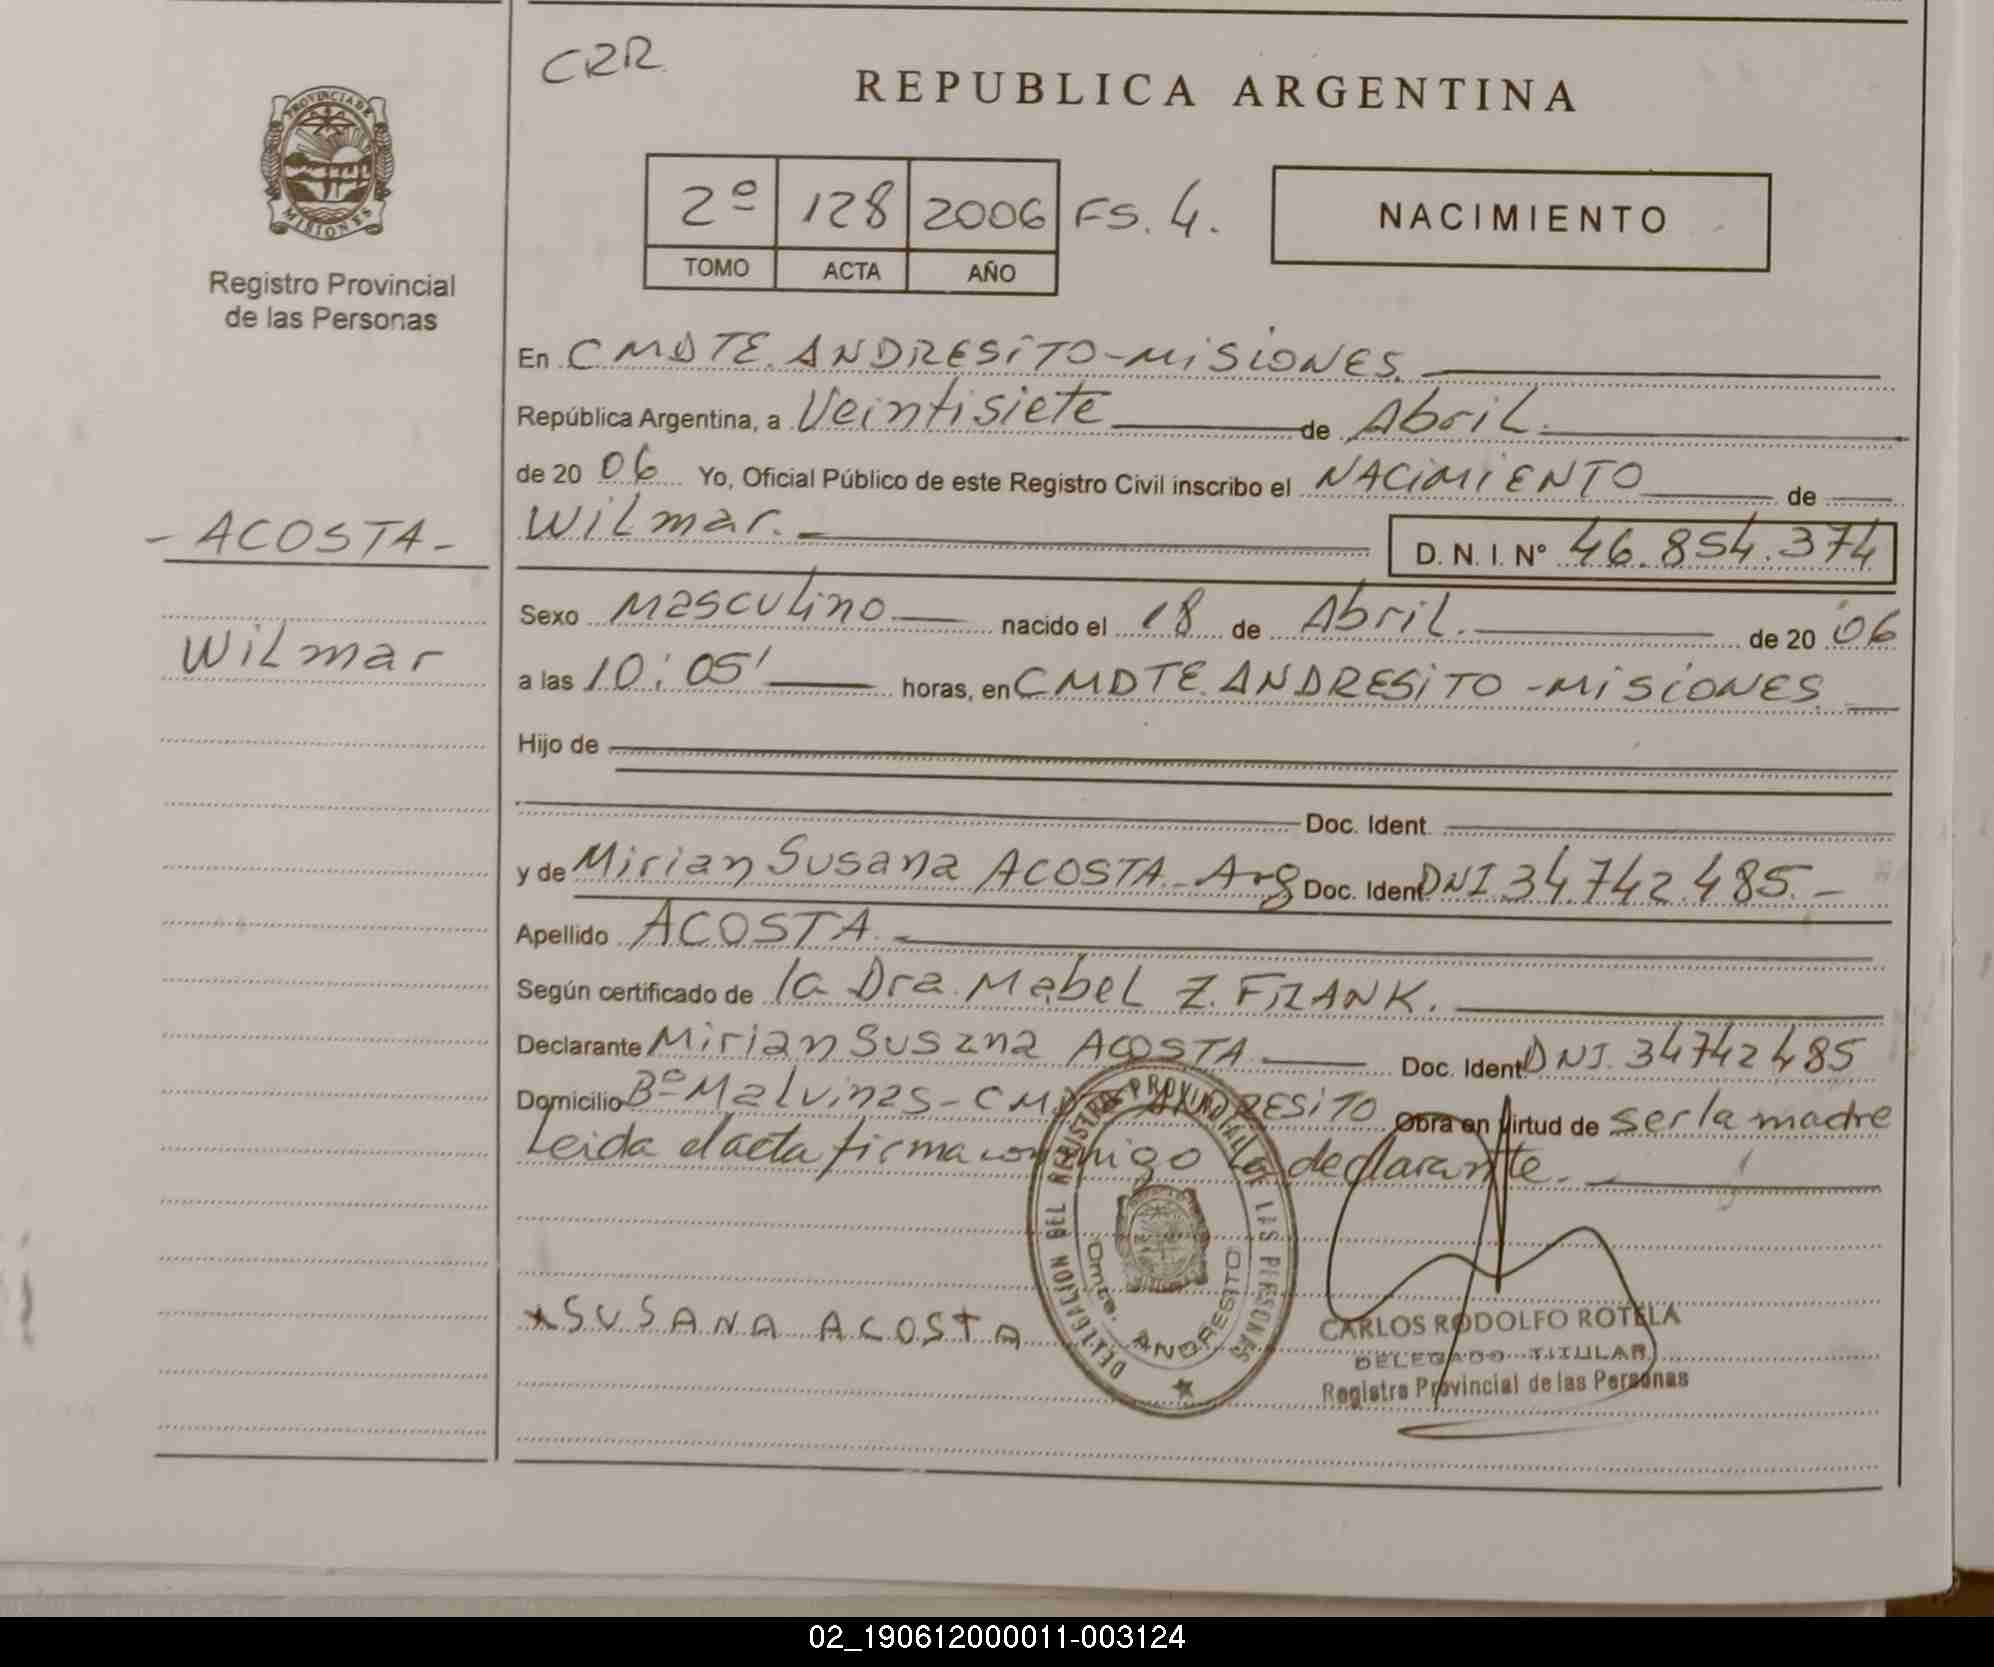 CRR
REPUBLICA ARGENTINA
PROVINCIA DE
MISIONES
Registro Provincial
de las Personas
2º 128 2006 FS. 4.
TOMO ACTA AÑO
NACIMIENTO
En CMDTE. ANDRESiTO-MiSiONES.
República Argentina, a Veintisiete de Abril.
de 20 06 Yo, Oficial Público de este Registro Civil inscribo el NACiMiENTO de
- ACOSTA -
Wilmar.
D. N. I. N° 46.854.374
Wilmar
Sexo Masculino nacido el 18 de Abril. de 20 06
a las 10:05' horas, en CMDTE. ANDRESiTO -MiSiONES.
Hijo de
Doc. Ident.
y de Mirian Susana ACOSTA - Arg Doc. Ident. DNI 34.742.485.-
Apellido ACOSTA.
Según certificado de la Dra. Mabel Z. FRANK.
Declarante Mirian Susana ACOSTA Doc. Ident. DNI. 34742485
Domicilio Bº Malvinas - CMDTE ANDRESiTO Obra en virtud de ser la madre
Leida el acta firma conmigo la declarante.
DELEGACION DEL REGISTRO PROVINCIAL DE LAS PERSONAS
Cmte. ANDRESITO
xSUSANA ACOSTA
CARLOS RODOLFO ROTELA
DELEGADO TITULAR
Registro Provincial de las Personas
02_190612000011-003124